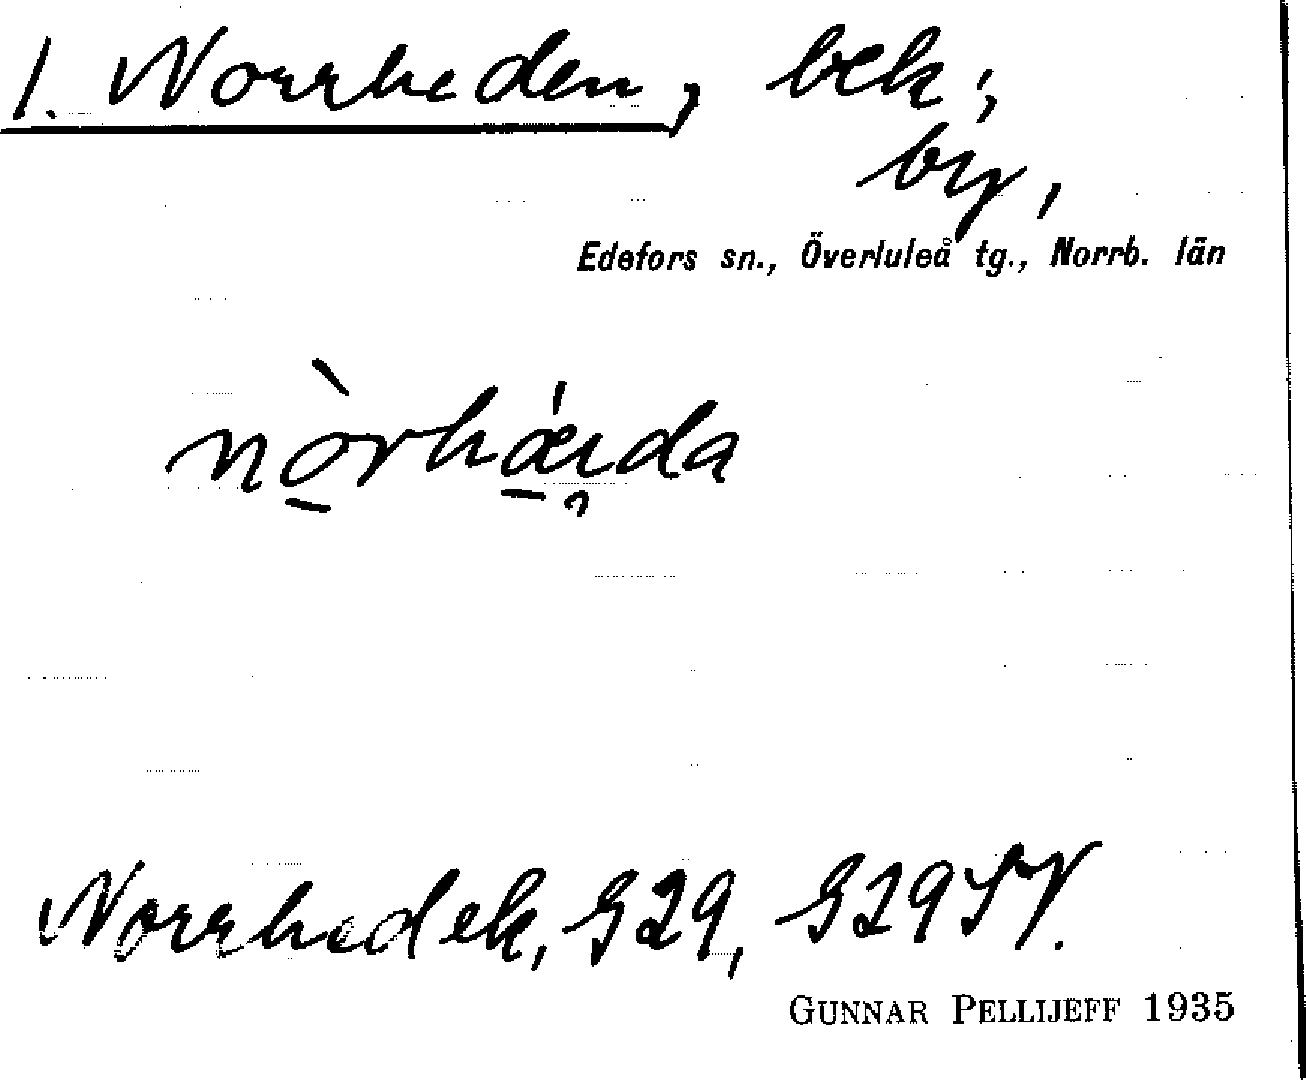 1. Norrheden, bek;
by,
Edefors sn., Överluleå tg., Norrb. län
nòrhæ̀ı̯da
Norrhed ek, G29, G29SV.
GUNNAR PELLIJEFF 1935